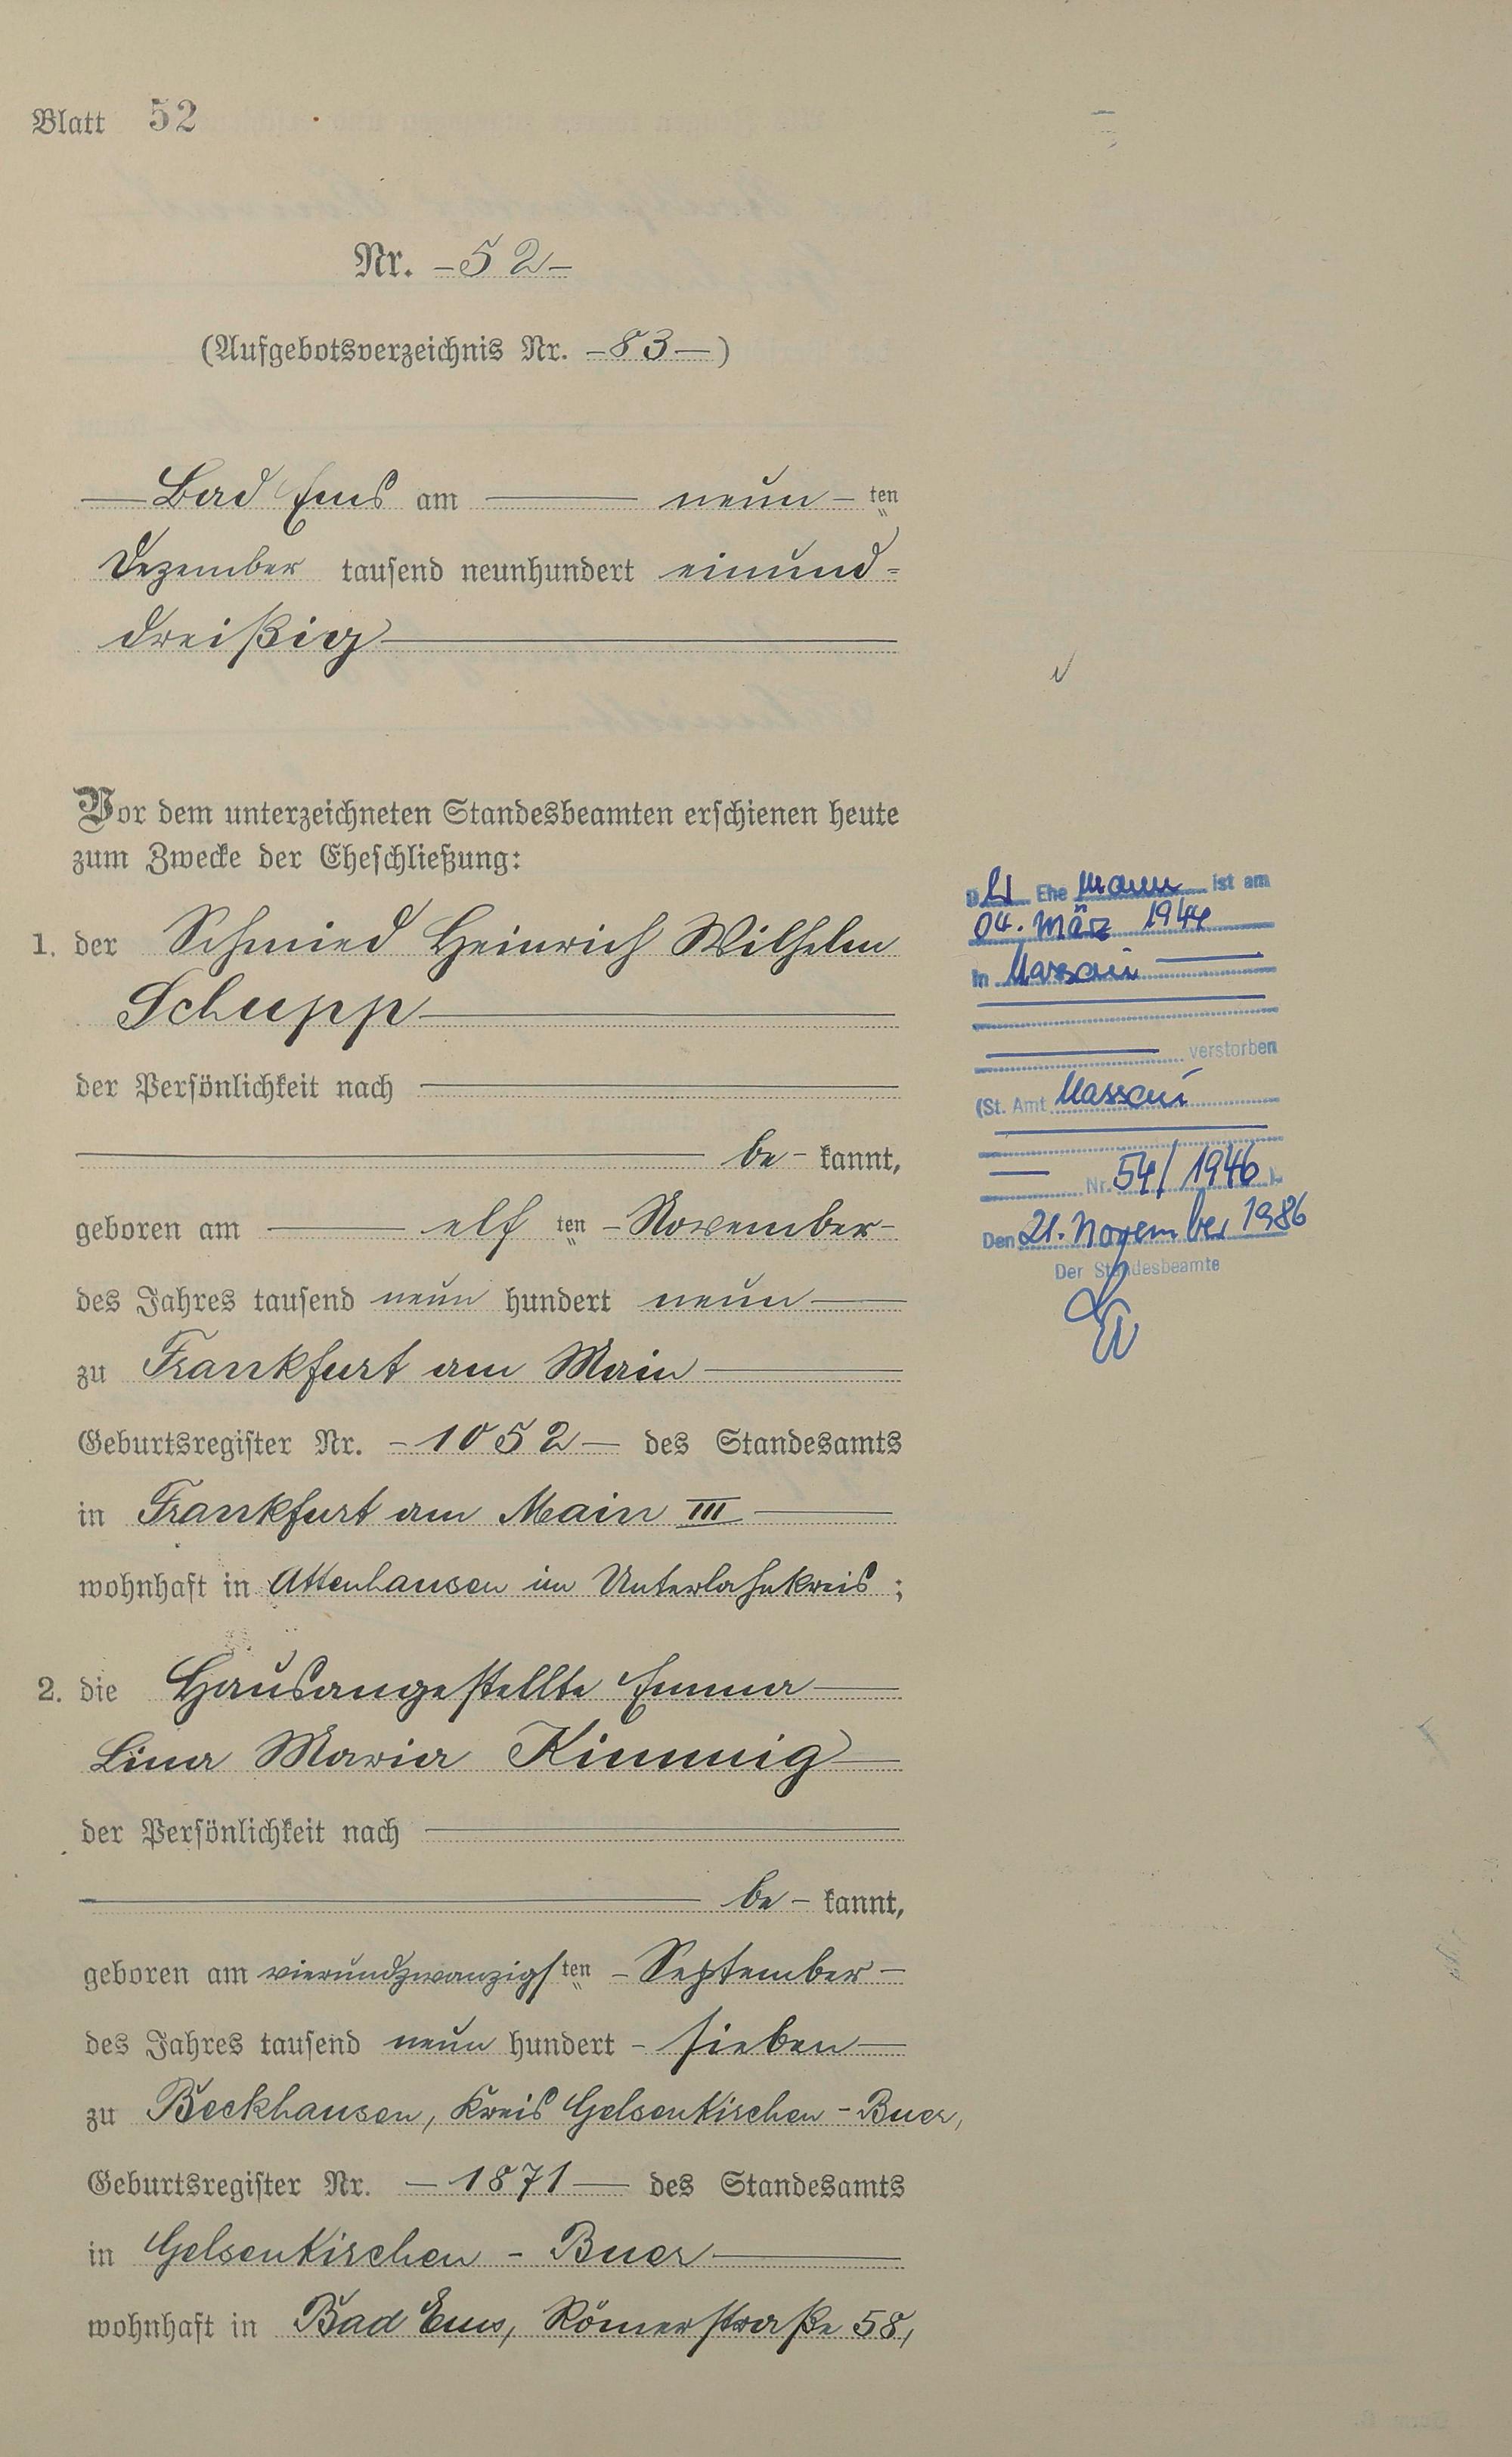 Blatt 52
Nr. -52-
(Aufgebotsverzeichnis Nr. -83-)
Bad Ems am neun-ten
Dezember tausend neunhundert einund=
dreißig
Vor dem unterzeichneten Standesbeamten erschienen heute
zum Zwecke der Eheschließung:
1. der Schmied Heinrich Wilhelm
Schupp
der Persönlichkeit nach
be- kannt,
geboren am elf ten - November-
des Jahres tausend neun hundert neun
zu Frankfurt am Main
Geburtsregister Nr. -1052- des Standesamts
in Frankfurt am Main III
wohnhaft in Attenhausen im Unterlahnkreis;
2. die Hausangestellte Emma
Lina Maria Kimmig
der Persönlichkeit nach
be- kannt,
geboren am vierundzwanzigsten - September-
des Jahres tausend neun hundert - sieben
zu Beckhausen, Kreis Gelsenkirchen-Buer,
Geburtsregister Nr. -1871- des Standesamts
in Gelsenkirchen - Buer
wohnhaft in Bad Ems, Römerstraße 58,
Der Ehe mann ist am
04. März 1944
in Nassau
verstorben
(St. Amt Nassau
Nr. 54/1946).
Den 21. November 1986
Der Standesbeamte